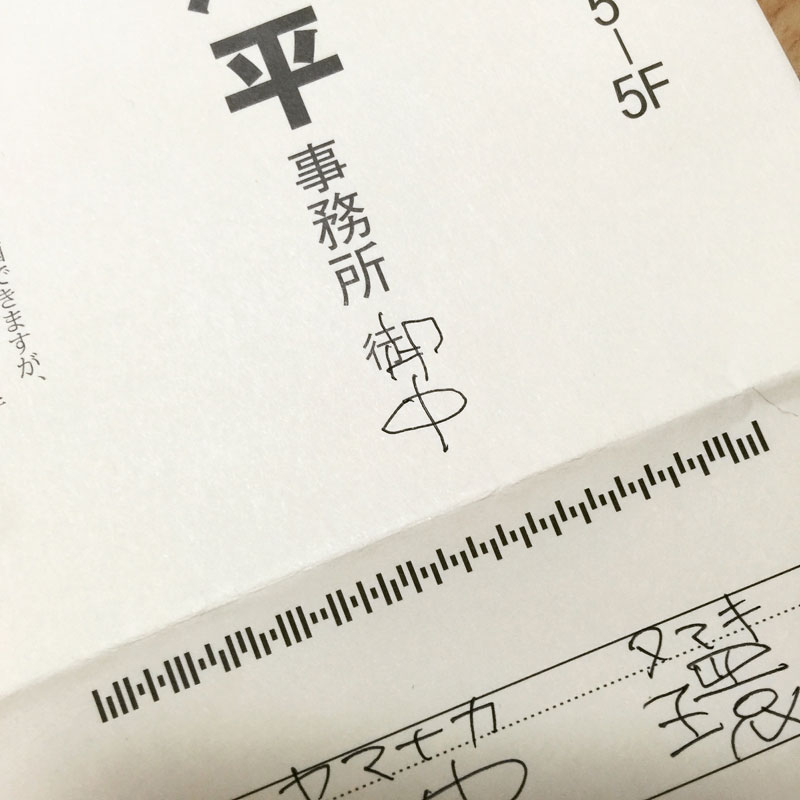 5-5F
平事務所 御中
できますが、
ヤマナカ タマキ
中 環